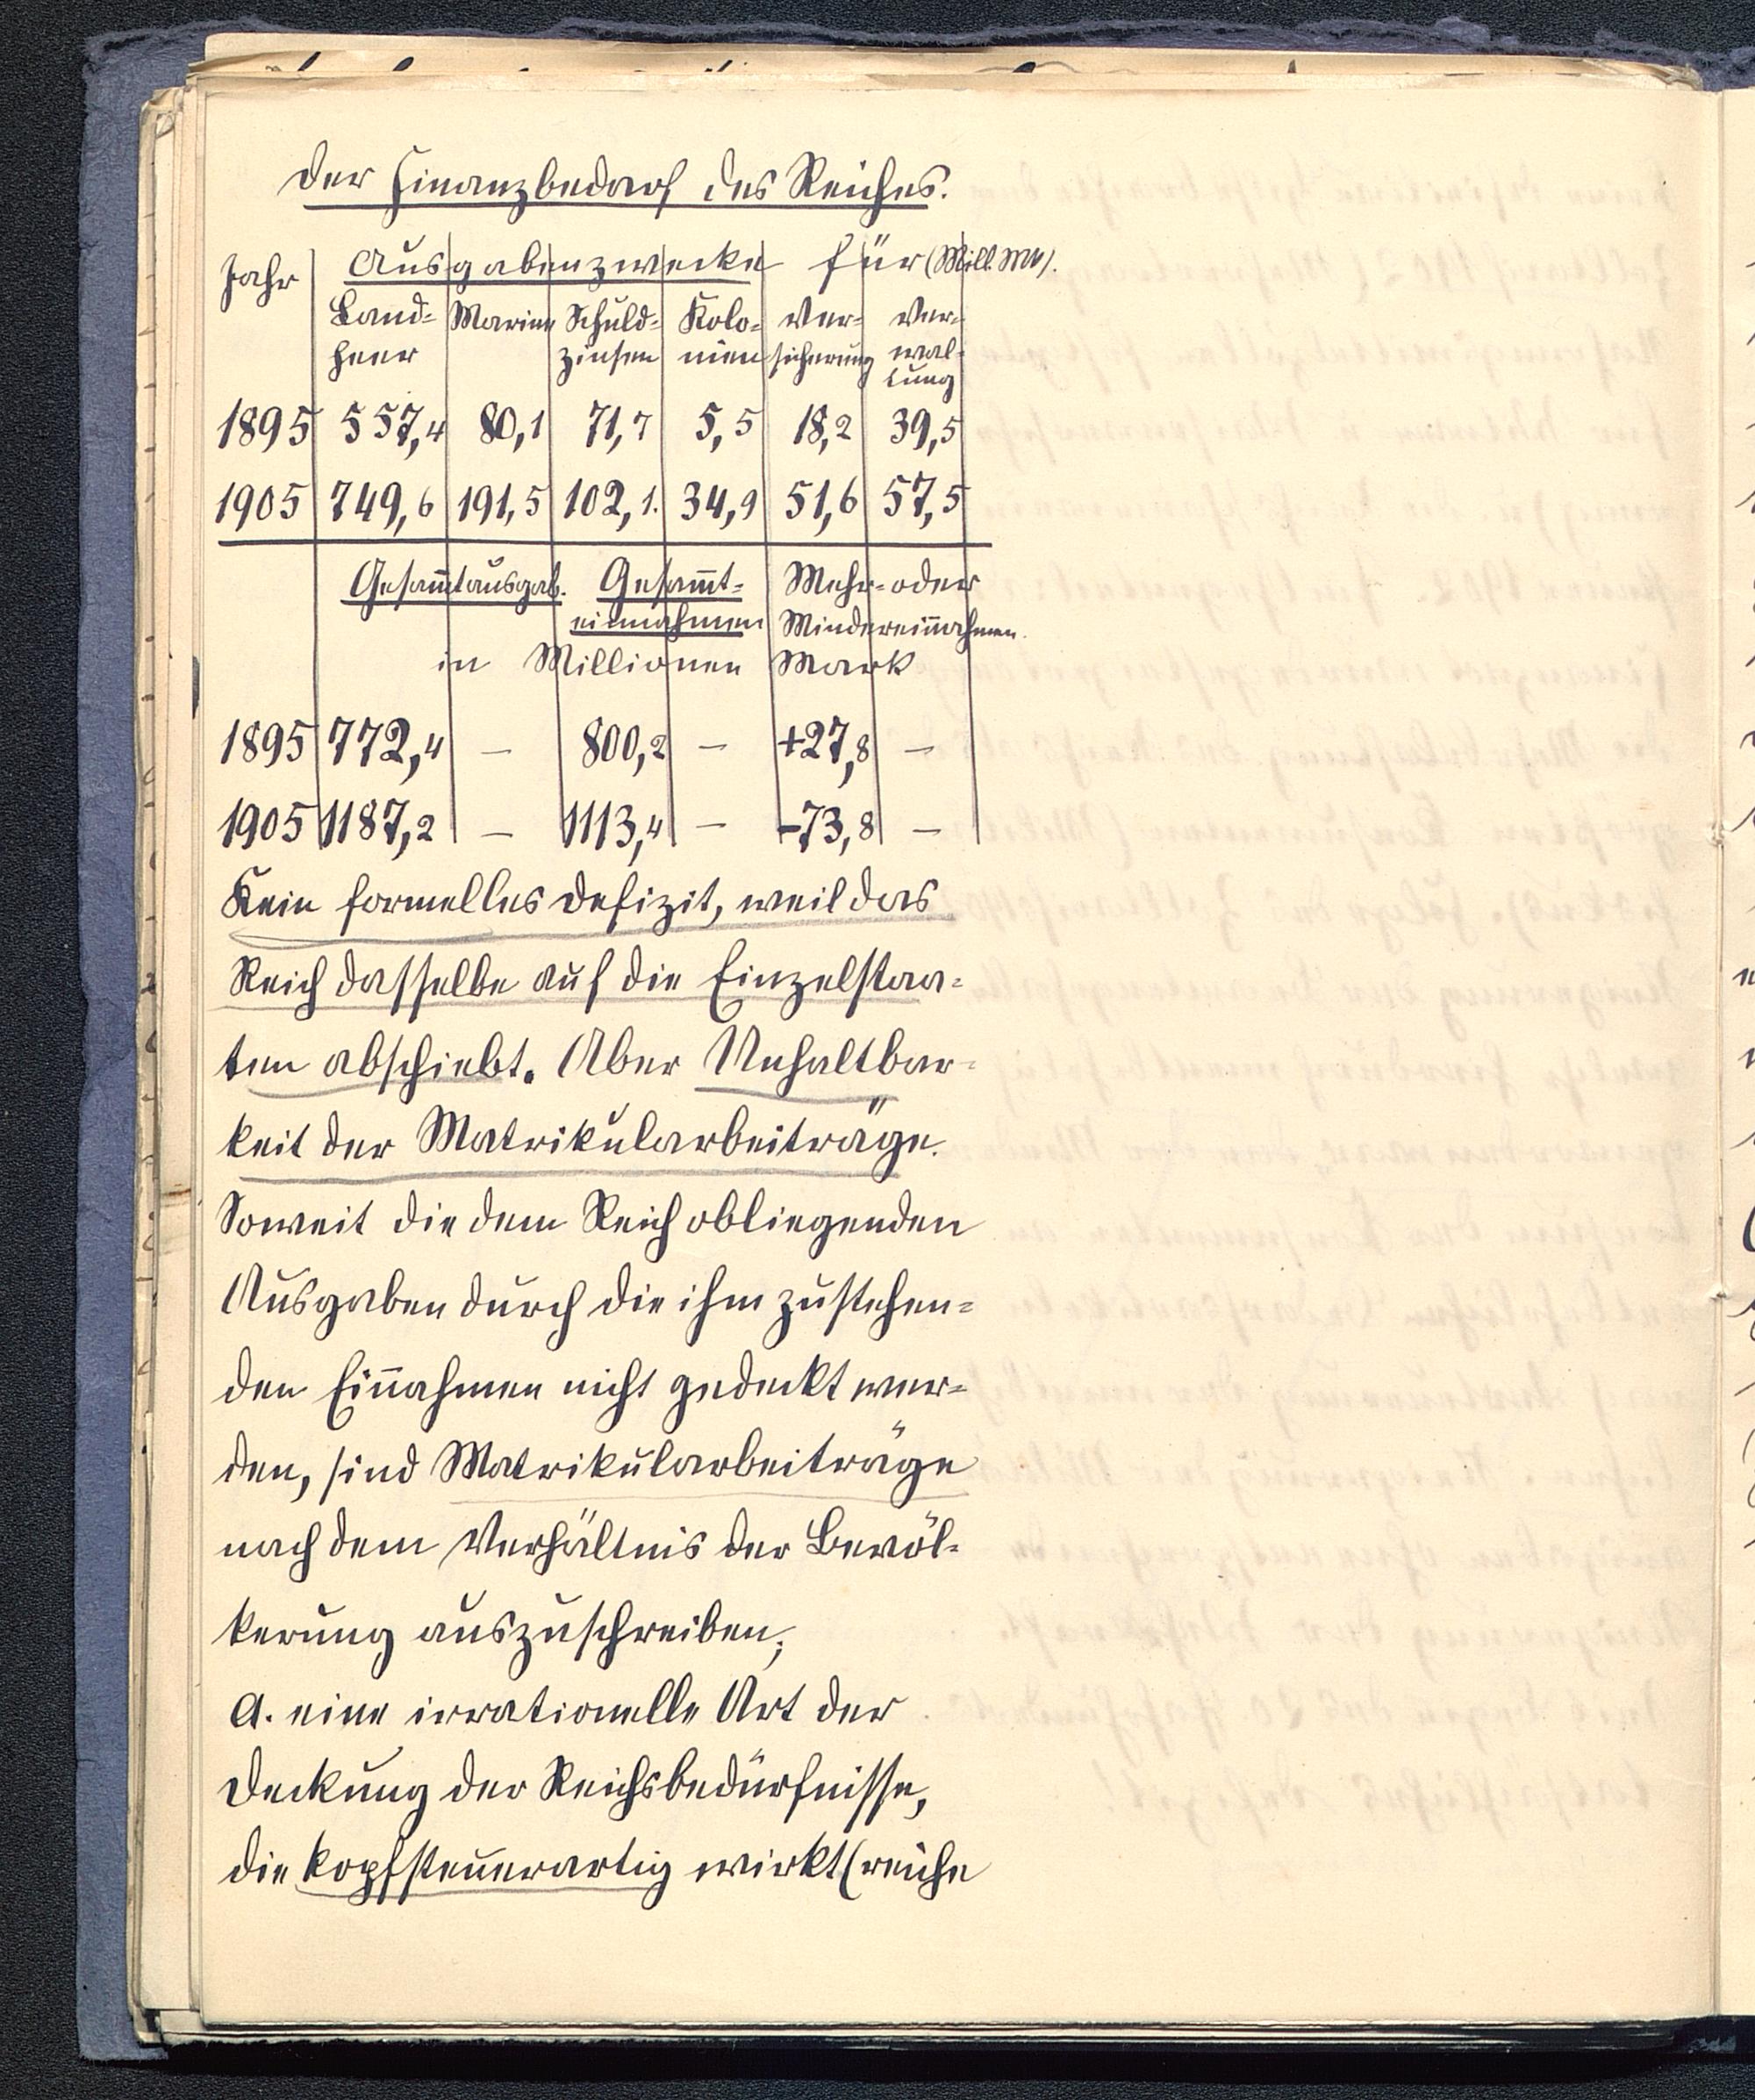 Der Finanzbedarf des Reiches.
Jahr Ausgabenzwecke für (Mill. Mk).
Land= Marine Schuld= Kolo= Ver= Ver=
heer zinsen nien sicherung wal=
tung
1895 557,4 80,1 71,7 5,5 18,2 39,5
1905 749,6 191,5 102,1. 34,9 51,6 57,5
Gesam̄tausgab. Gesam̄t= Mehr= oder
einnahmen Mindereinnahmen.
in Millionen Mark
1895 772,4 – 800,2 – +27,8 –
1905 1187,2 – 1113,4 – -73,8 –
Kein formelles Defizit, weil das
Reich dasselbe auf die Einzelstaa=
ten abschiebt. Aber Unhaltbar=
keit der Matrikularbeiträge.
Soweit die dem Reich obliegenden
Ausgaben durch die ihm zustehen=
den Ein̄ahmen nicht gedeckt wer=
den, sind Matrikularbeiträge
nach dem Verhältnis der Bevöl=
kerung auszuschreiben;
a. eine irrationelle Art der
Deckung der Reichsbedürfnisse,
die kopfsteuerartig wirkt (reiche